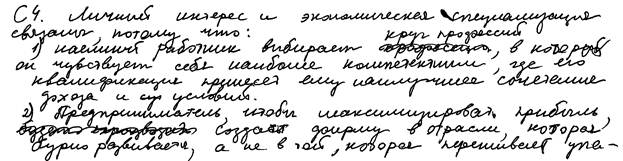 С4. Личный интерес и экономическая специализация
связаны, потому что:
1) наёмный работник выбирает круг профессий, в которой
он чувствует себя наиболее компетентным, где его
квалификация принесёт ему наилучшее сочетание
дохода и условий.
2) Предприниматель, чтобы максимизировать прибыль,
создаёт фирму в отрасли, которая
бурно развивается, а не в той, которая переживает упа-